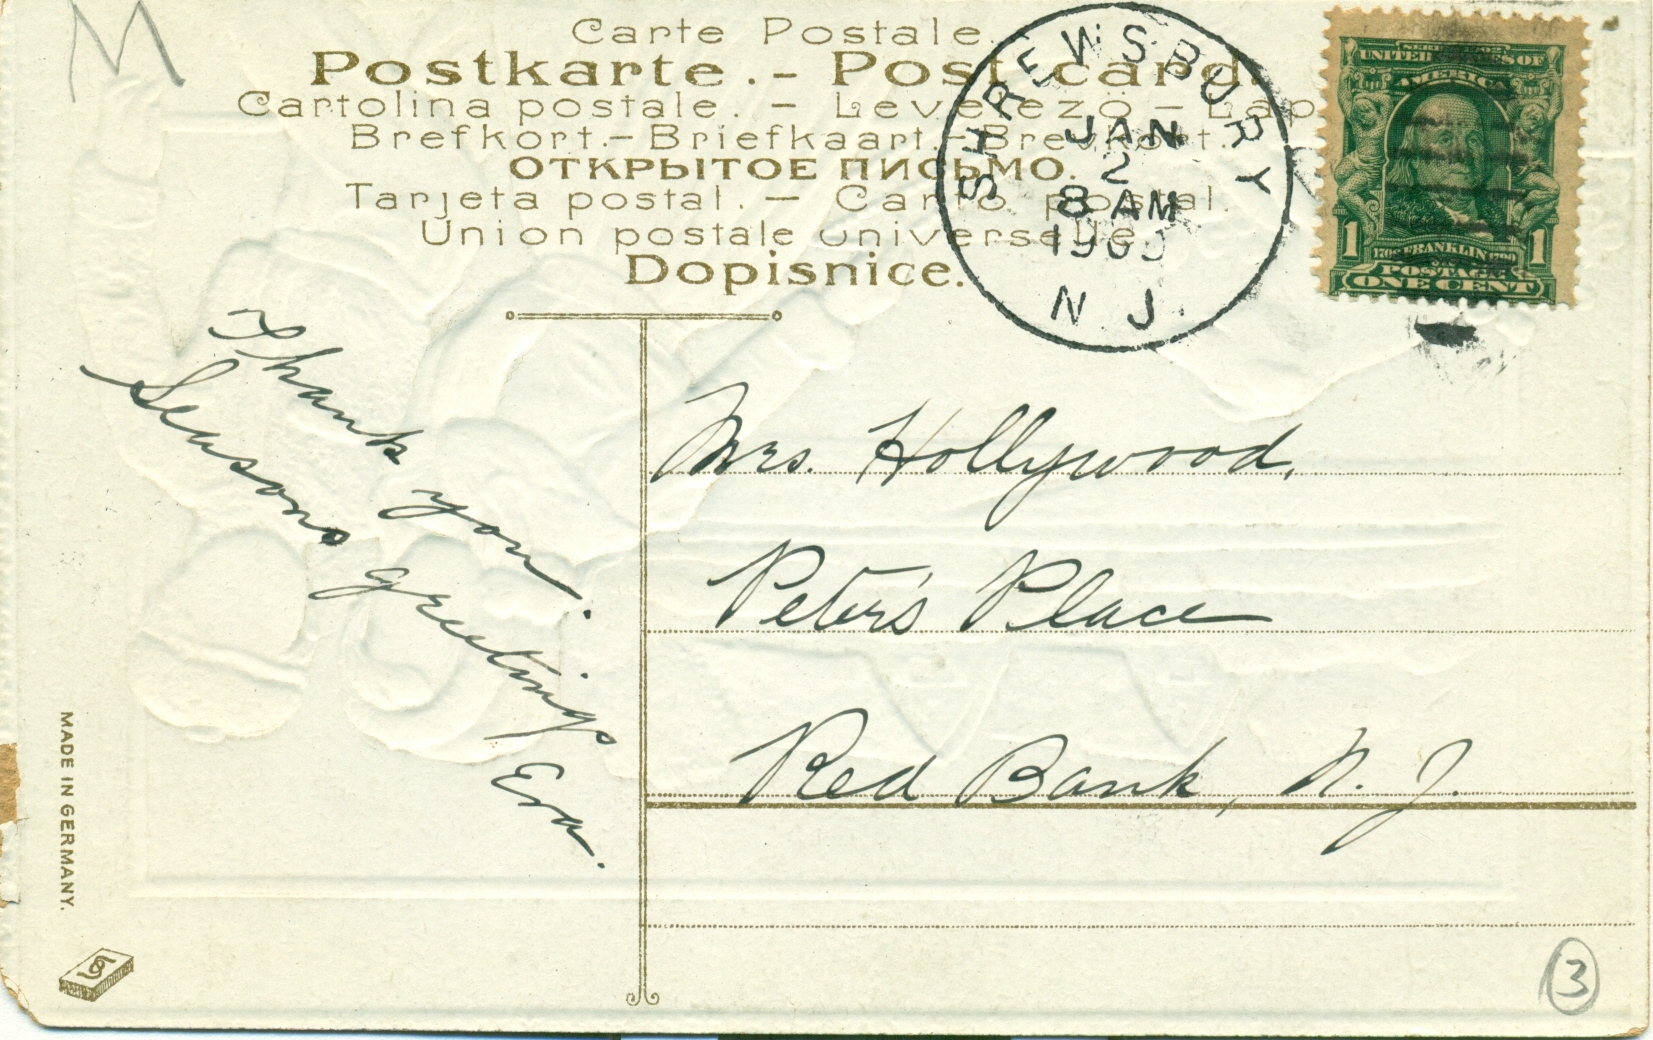 M
Carte Postale.
Postkarte.- Post card
Cartolina postale. - Levelezö - Lap
Brefkort.-Briefkaart.-Brevkort.
ОТКРЫТОЕ ПИСЬМО.
Tarjeta postal. - Carta postal.
Union postale universelle
Dopisnice.
SHREWSBURY
JAN
2
8 AM
N. J.
SERIES 1902
UNITED STATES OF
AMERICA
1 1
FRANKLIN
POSTAGE
ONE CENT
Thank you.
Seasons greetings
Mrs. Hollywood,
Peter's Place
Red Bank, N. J.
MADE IN GERMANY.
3